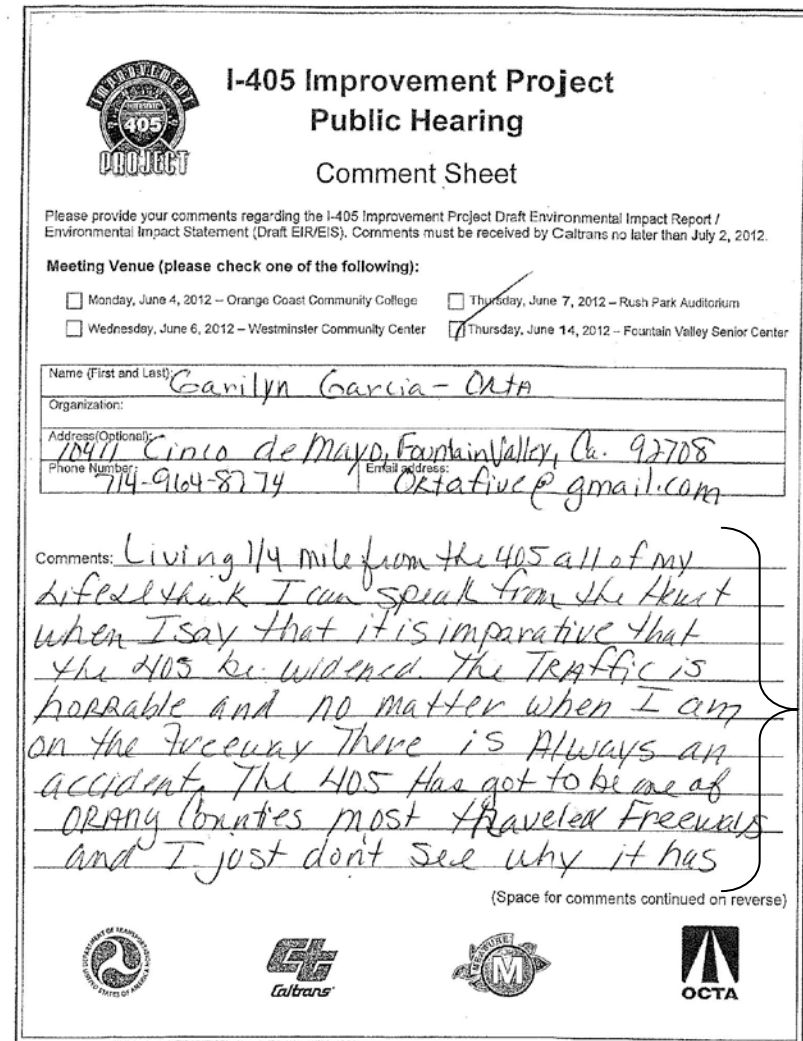 IMPROVEMENT
INTERSTATE
405
PROJECT
I-405 Improvement Project
Public Hearing
Comment Sheet
Please provide your comments regarding the I-405 Improvement Project Draft Environmental Impact Report /
Environmental Impact Statement (Draft EIR/EIS). Comments must be received by Caltrans no later than July 2, 2012.
Meeting Venue (please check one of the following):
Monday, June 4, 2012 – Orange Coast Community College
Thursday, June 7, 2012 – Rush Park Auditorium
Wednesday, June 6, 2012 – Westminster Community Center
Thursday, June 14, 2012 – Fountain Valley Senior Center
Name (First and Last): Garilyn Garcia - Orta
Organization:
Address(Optional): 10411 Cinco de Mayo, Fountain Valley, Ca. 92708
Phone Number: 714-964-8274 Email address: Ortafive@gmail.com
Comments: Living 1/4 mile from the 405 all of my
Life I think I can speak from the Heart
when I say that it is imparative that
the 405 be widened. The TRAffic is
hoRRable and no matter when I am
on the Freeway There is Always an
accident. The 405 Has got to be one of
ORANg Counties most traveled Freeways
and I just don't see why it has
(Space for comments continued on reverse)
DEPARTMENT OF TRANSPORTATION
UNITED STATES OF AMERICA
Caltrans
MEASURE
M
OCTA